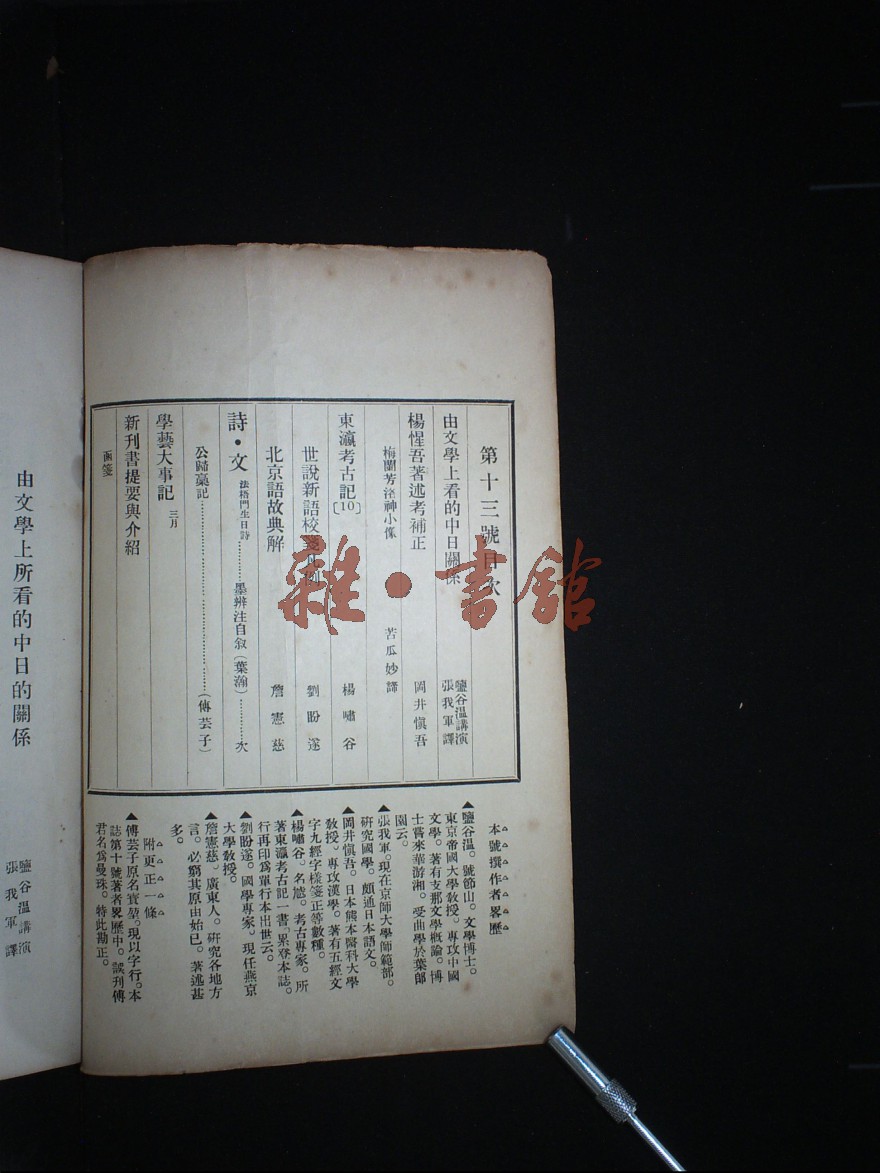 第十三號目次
由文學上看的中日關係 鹽谷溫講演 張我軍譯
楊惺吾著述考補正 岡井愼吾
梅蘭芳洛神小像 苦瓜妙諦
東瀛考古記〔10〕 楊嘯谷
世說新語校箋凡例 劉盼遂
北京語故典解 詹憲慈
詩・文 法梧門生日詩…………墨辨注自敘(葉瀚)…………次
公歸稾記…………(傅芸子)
學藝大事記 三月
新刊書提要與介紹
畫箋
本號撰作者畧歷
▲鹽谷溫。號節山。文學博士。
東京帝國大學敎授。專攻中國
文學。著有支那文學槪論。博
士嘗來華游湘。受曲學於葉郋
園云。
▲張我軍。現在京師大學師範部。
硏究國學。頗通日本語文。
▲岡井愼吾。日本熊本醫科大學
敎授。專攻漢學。著有五經文
字九經字樣箋正等數種。
▲楊嘯谷。名㦤。考古專家。所
著東瀛考古記一書。累登本誌。
行再印爲單行本出世云。
▲劉盼遂。國學專家。現任燕京
大學敎授。
▲詹憲慈。廣東人。硏究各地方
言。必窮其原由始已。著述甚
多。
附更正一條
▲傅芸子原名寶堃。現以字行。本
誌第十號著者畧歷中。誤刊傅
君名爲曼珠。特此勘正。
由文學上所看的中日的關係
鹽谷溫講演
張我軍譯
雜・書館